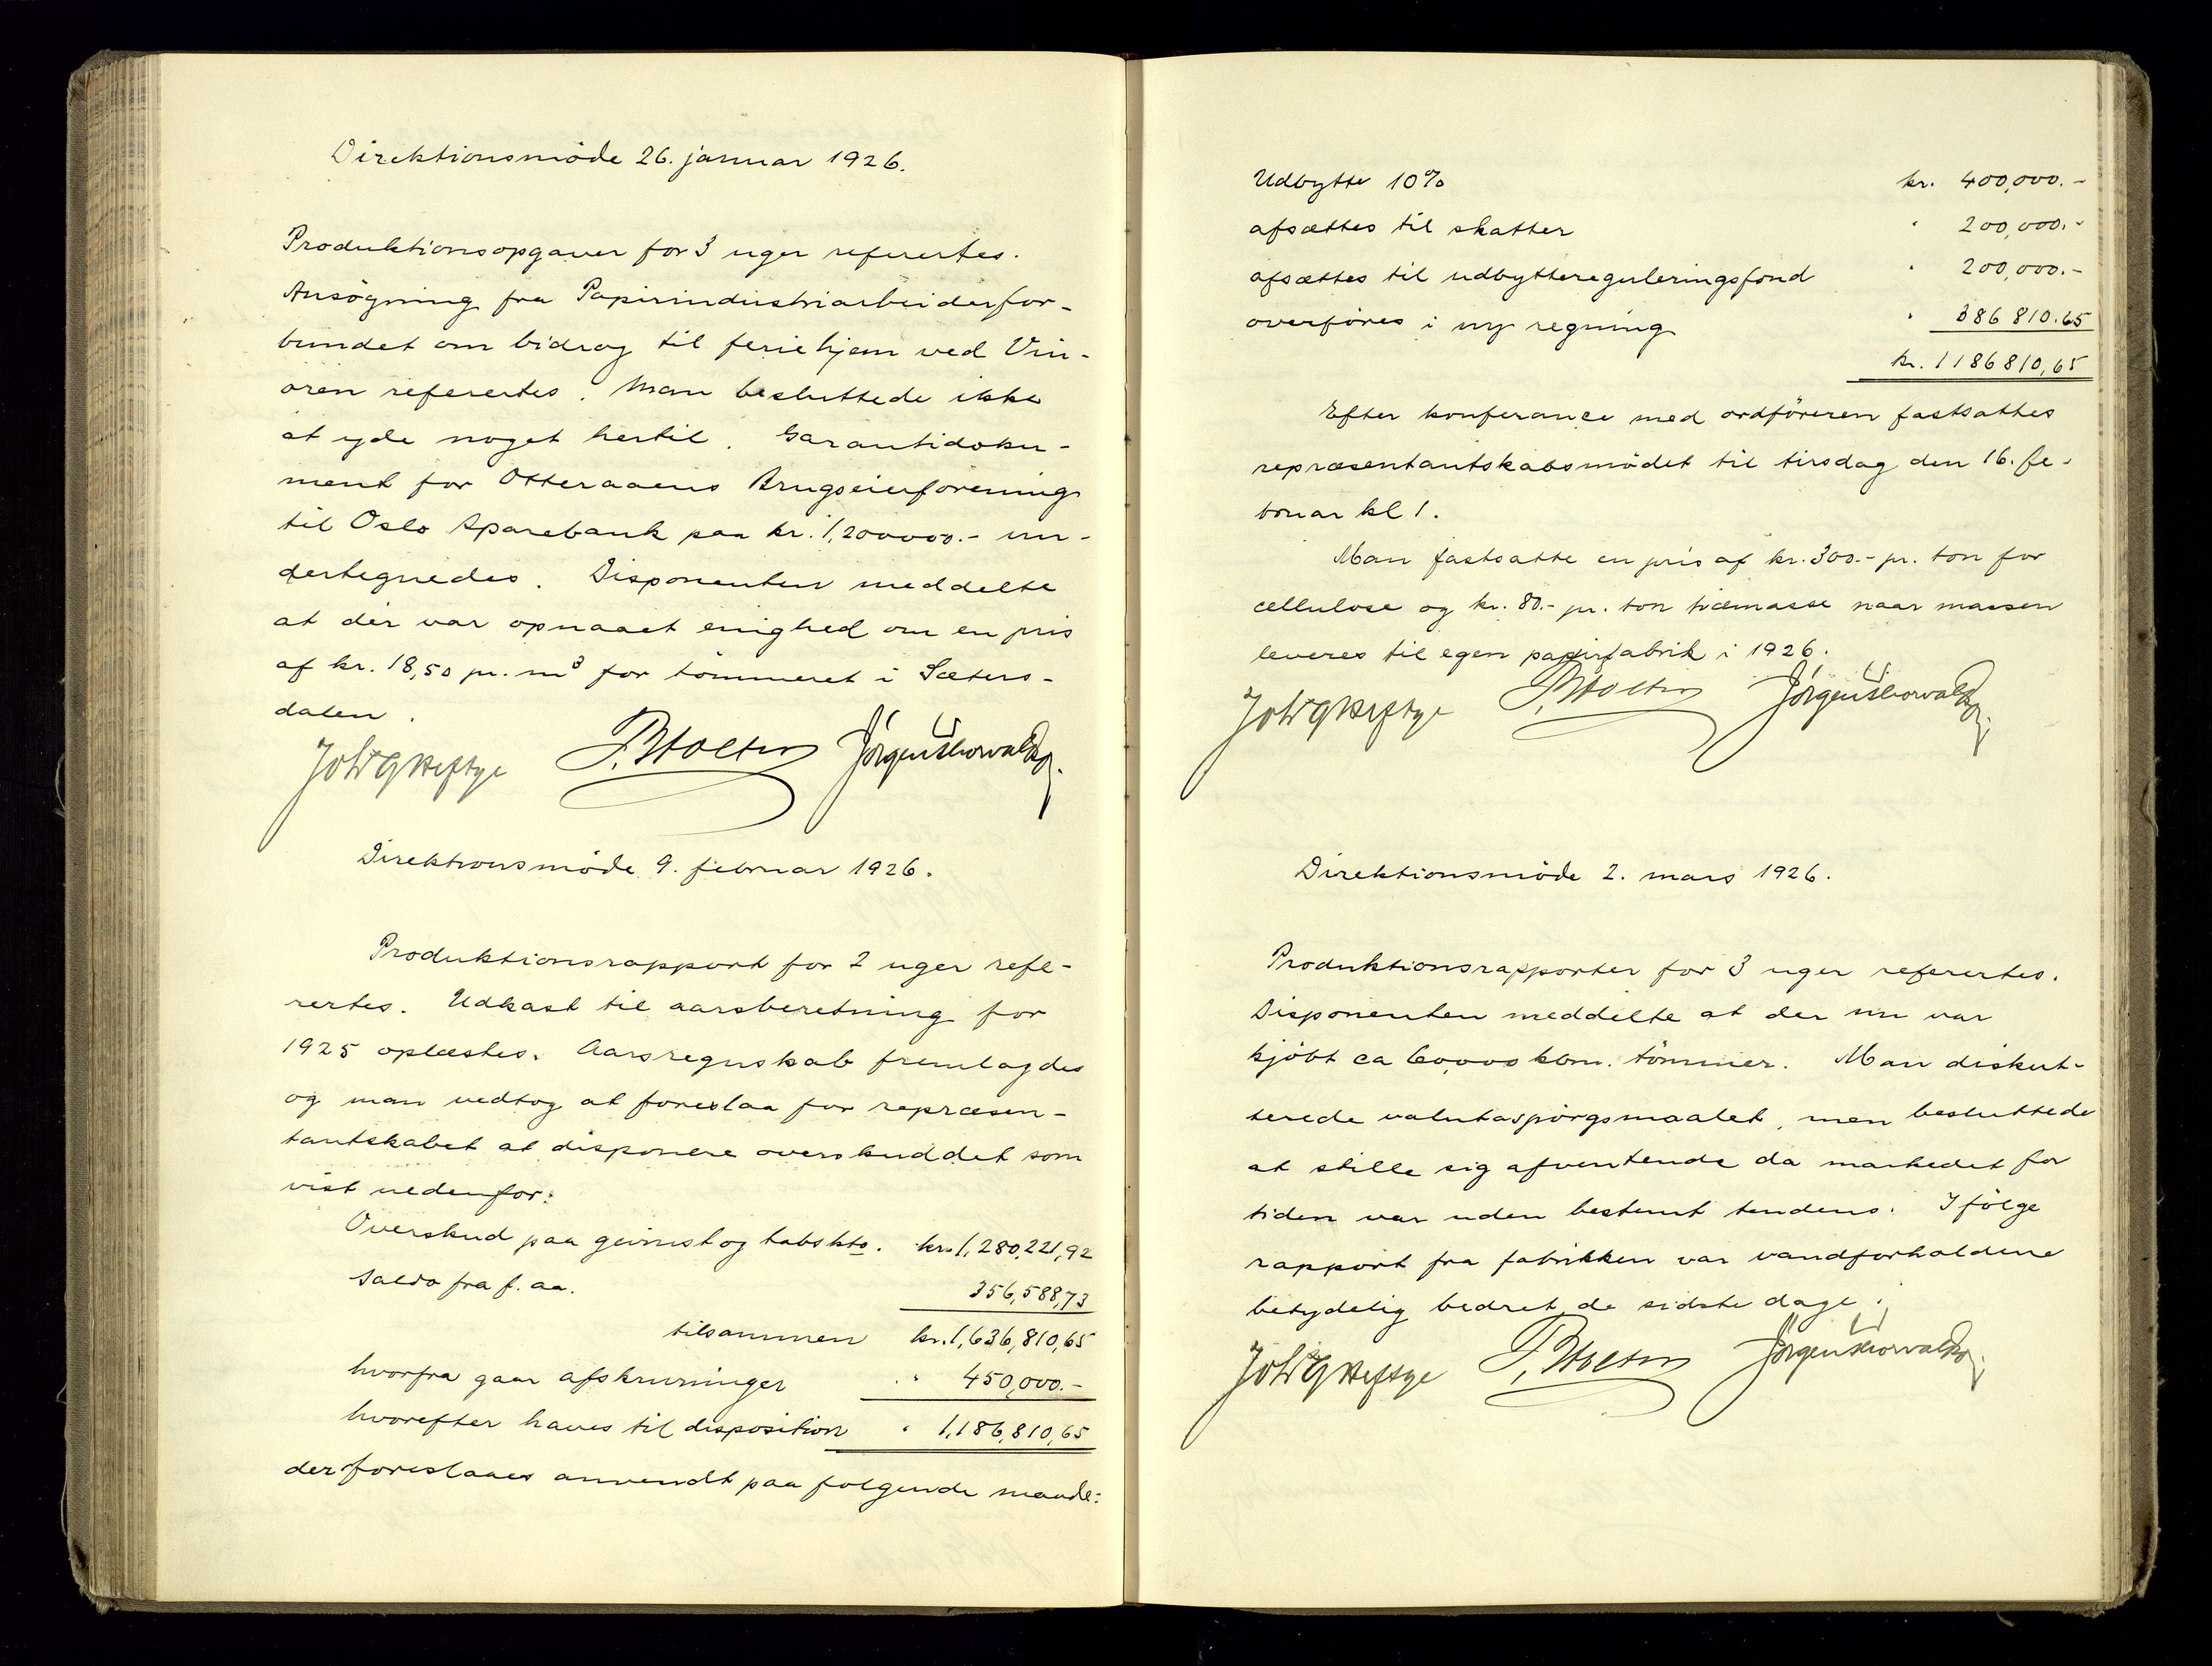 Direktionsmöde 26. januar 1926.
Produktionsopgaver for 3 uger refererte​s.
Ansögning fra Papirindustriarbeiderfor-
bundet om bidrag til feriehjem ved Vin-
oren refererte​s. Man besluttede ikke
at yde noget hertil. Garantidoku-
ment for Otteraaens Brugseierforening
til Oslo Sparebank paa kr. 1,200000.- un-
dertegnedes. Disponenten meddelte
at der var opnaaet enighed om en pris
af kr. 18,50 pr. m³ for tömmeret i Sæters-
dalen.
Joh G Heftye P. Holter Jörgen Thorvald
Direktionsmöde 9. februar 1926.
Produktionsrapport for 2 uger refe-
rertes. Udkast til aarsberetning for
1925 oplæstes. Aarsregnskab fremlagdes
og man vedtog at foreslaa for repræsen-
tantskabet at disponere overskuddet som
vist nedenfor:
Overskud paa gevinst og tabskto. kr. 1,280,221,92
Saldo fra f. aa. 356,588,73
tilsammen kr. 1,636,810,65
hvorfra gaar afskrivninger " " 450,000.-
hvorefter haves til disposition " 1,186,810,65
der foreslaaes anvendt paa følgende maade:
Udbytte 10% kr. 400,000.-
afsættes til skatter " 200,000.-
afsættes til udbyttereguleringsfond " 200,000.-
overföres i ny regning " 386 810.65
kr. 1186810,65
Efter konferance med ordföreren fastsattes
repræsentantskabsmödet til tirsdag den 16. fe-
bruar kl 1.
Man fastsatte en pris af kr. 300.- pr. ton for
cellulose og kr. 80.- pr. ton træmasse naar massen
leveres til egen papirfabrik i 1926.
Joh G Heftye P. Holter Jörgen Thorvald
Direktionsmöde 2. mars 1926.
Produktionsrapporter for 3 uger refererte​s.
Disponenten meddelte at der nu var
kjöbt ca 60,000 kbm. tömmer. Man diskut-
terede valutaspörgsmaalet, men besluttede
at stille sig afventende da markedet for
tiden var uden bestemt tendens. I fölge
rapport fra fabrikken var vandforholdene
betydelig bedret de sidste dage.
Joh G Heftye P. Holter Jörgen Thorvald